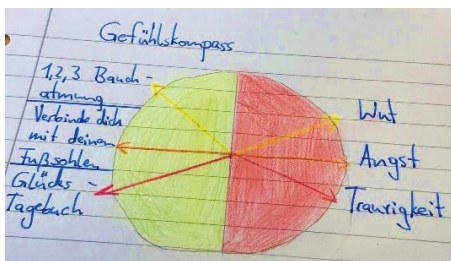 Gefühlskompass
1, 2, 3 Bauch-
atmung
Verbinde dich
mit deinen
Fußsohlen
Glücks-
Tagebuch
Wut
Angst
Traurigkeit